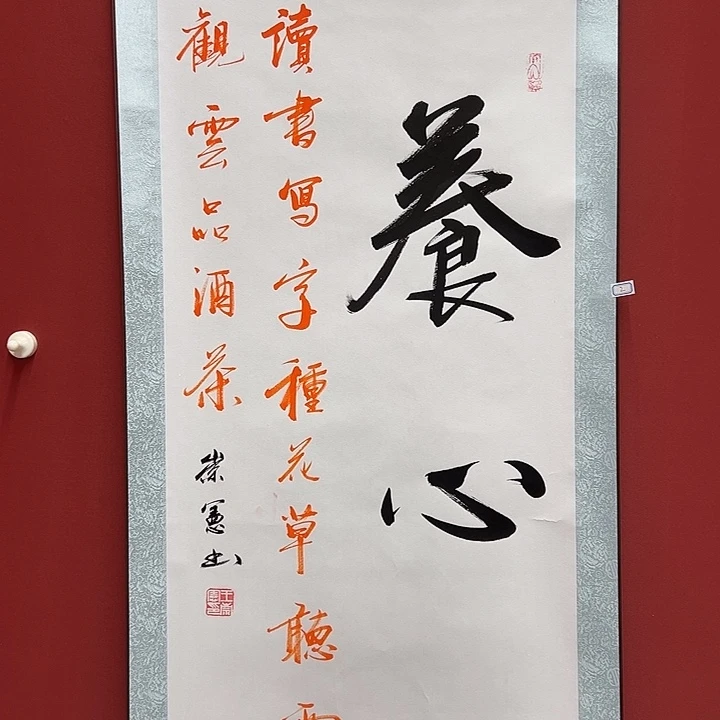 養心
讀書寫字種花草聽
觀雲品酒茶
崇憲书
2